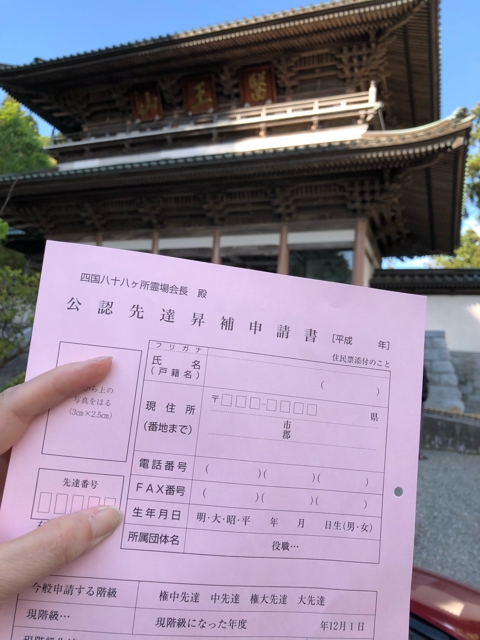 醫王山
四国八十八ヶ所霊場会長 殿
公認先達昇補申請書 [平成 年]
住民票添付のこと
フリガナ
氏名
(戸籍名)
( )
真をはる
(3㎝×2.5㎝)
現住所
(番地まで)
〒□□□-□□□□
県
市
郡
電話番号 ( )( )( )
FAX番号 ( )( )( )
先達番号
生年月日 明・大・昭・平 年 月 日生(男・女)
所属団体名 役職…
今般申請する階級 権中先達 中先達 権大先達 大先達
現階級… 現階級になった年度 年12月1日